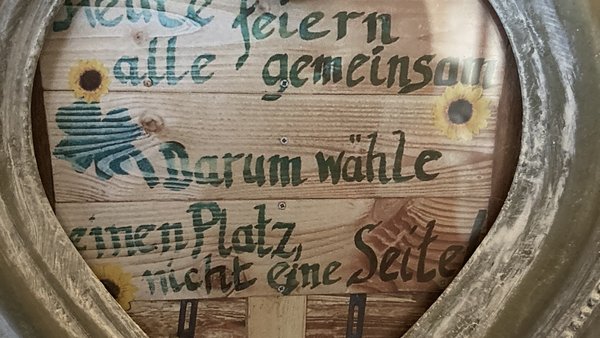 Heute feiern
alle gemeinsam
Darum wähle
einen Platz,
nicht eine Seite!